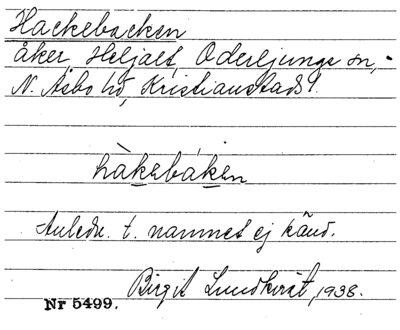 Hackebacken
åker, Heljalt, Oderljunga sn,
N. Åsbo hd, Kristianstads l.
hàkebáken
Anledn. t. namnet ej känd.
Birgit Lundkvist, 1938.
Nr 5499.